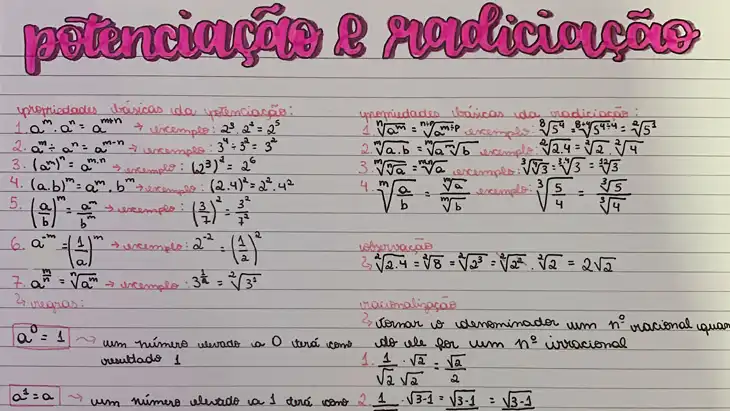 potenciação e radiciação
propriedades básicas da potenciação:
1. aᵐ . aⁿ = aᵐ⁺ⁿ → exemplo: 2³ . 2² = 2⁵
2. aᵐ ÷ aⁿ = aᵐ⁻ⁿ → exemplo: 3⁴ ÷ 3² = 3²
3. (aᵐ)ⁿ = aᵐ·ⁿ → exemplo: (2³)² = 2⁶
4. (a.b)ᵐ = aᵐ . bᵐ → exemplo: (2.4)² = 2² . 4²
5. (a/b)ᵐ = aᵐ/bᵐ → exemplo: (3/7)² = 3²/7²
6. a⁻ᵐ = (1/a)ᵐ → exemplo: 2⁻² = (1/2)²
7. a^(m/n) = ⁿ√aᵐ → exemplo: 3^(1/2) = ²√3¹
↳ regras:
a⁰ = 1 ~> um número elevado a 0 terá como
resultado 1
a¹ = a ~> um número elevado a 1 terá como
propriedades básicas da radiciação:
1. ⁿ√aᵐ = ⁿ÷ᵖ√aᵐ÷ᵖ exemplo: ⁸√5⁴ = ⁸÷⁴√5⁴÷⁴ = ²√5¹
2. ᵐ√a.b = ᵐ√a ᵐ√b exemplo: ²√2.4 = ²√2 . ²√4
3. ᵐ√ⁿ√a = ᵐ·ⁿ√a exemplo: ³√⁴√3 = ³·⁴√3 = ¹²√3
4. ᵐ√(a/b) = ᵐ√a/ᵐ√b exemplo: ³√(5/4) = ³√5/³√4
observação
↳ ²√2.4 = ²√8 = ²√2³ = ²√2² . ²√2 = 2√2
racionalização
↳ tornar o denominador um nº racional quan
do ele for um nº irracional
1. 1/√2 . √2/√2 = √2/2
2. 1 . √3-1 = √3-1 = √3-1